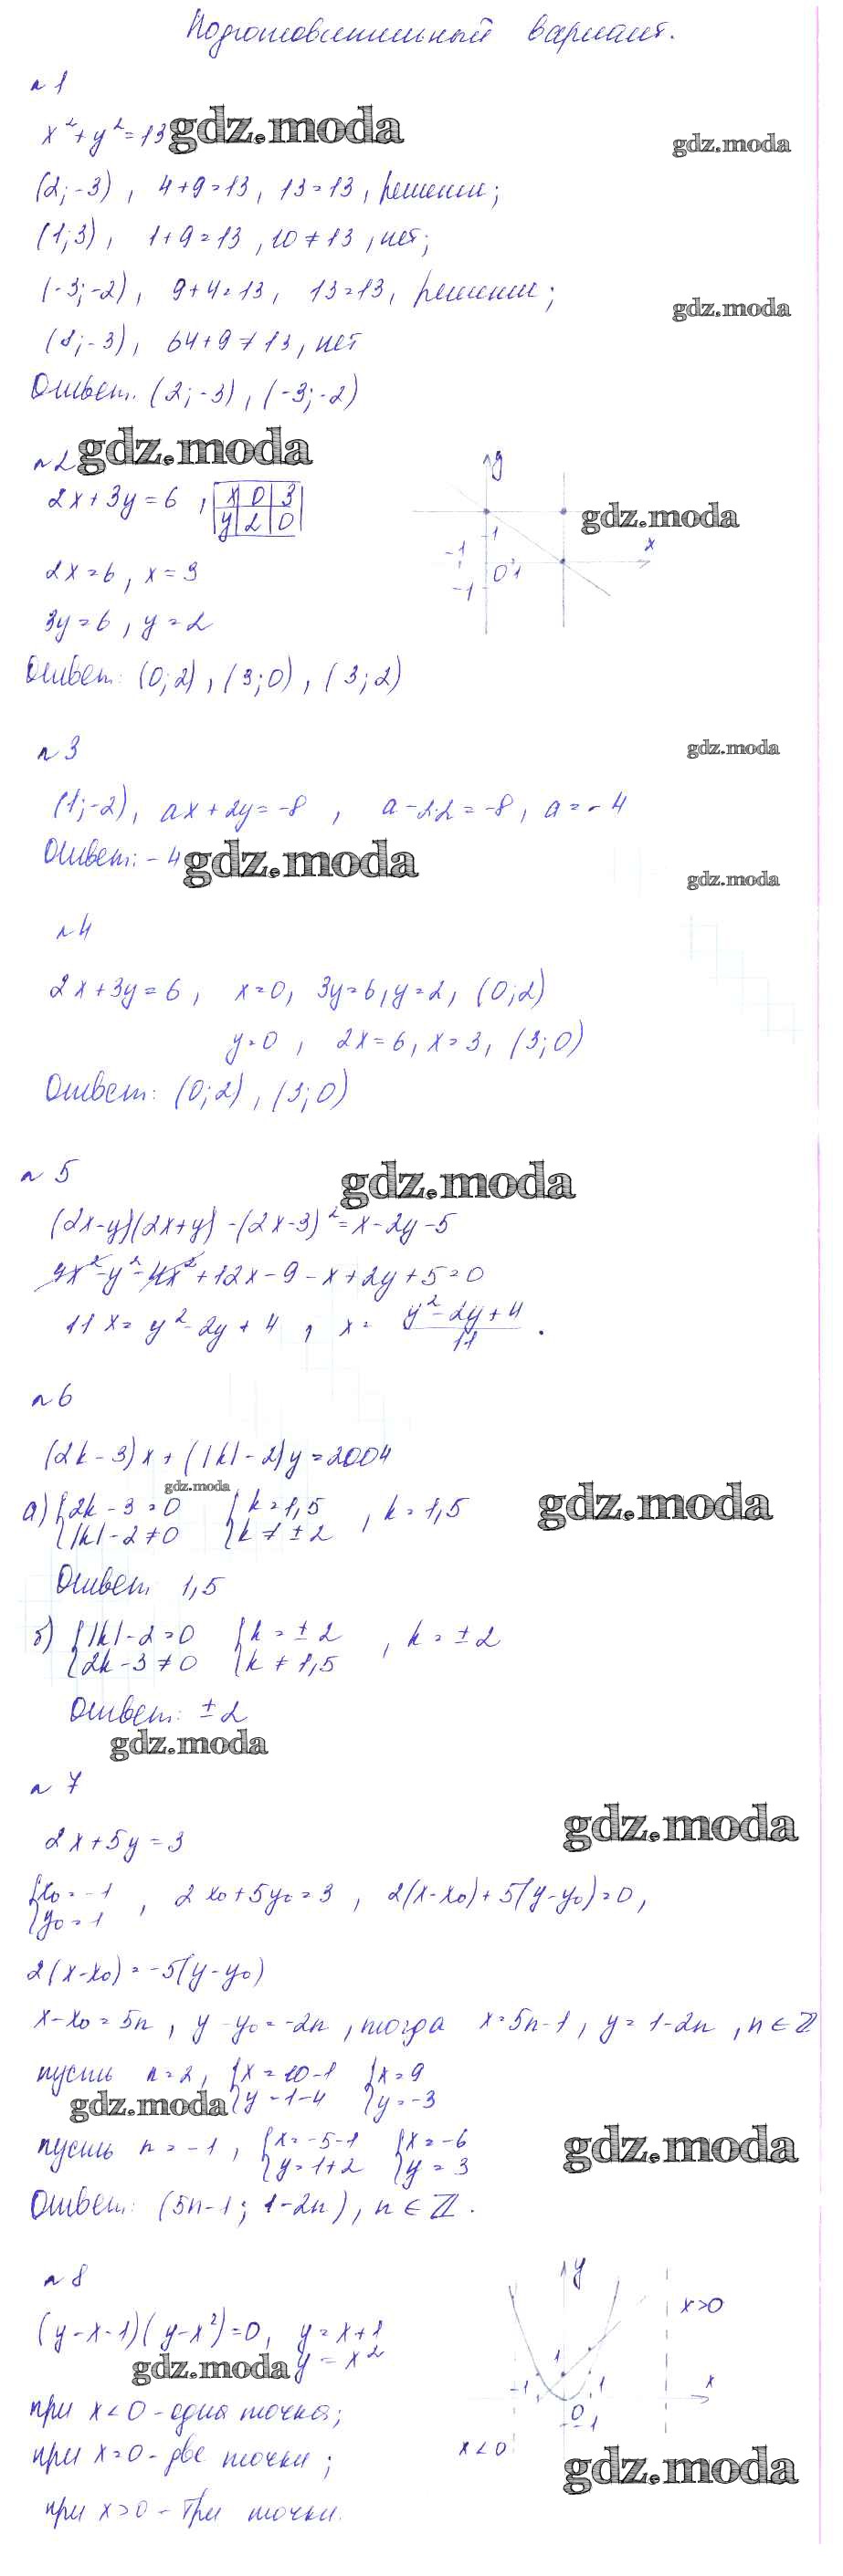 Подготовительный вариант.
n 1
x² + y² = 13 gdz.moda
gdz.moda
(2; -3), 4+9=13, 13=13, решение;
(1; 3), 1+9=13, 10≠13, нет;
(-3; -2), 9+4=13, 13=13, решение;
gdz.moda
(8; -3), 64+9≠13, нет
Ответ. (2; -3), (-3; -2)
n 2 gdz.moda
2x+3y=6, x 0 3
y 2 0
2x=6, x=3
3y=6, y=2
y
gdz.moda
1
x
-1
0 1
-1
Ответ: (0; 2), (3; 0), (3; 2)
n 3
gdz.moda
(1; -2), ax+2y=-8, a-2·2=-8, a=-4
Ответ: -4 gdz.moda
gdz.moda
n 4
2x+3y=6, x=0, 3y=6, y=2, (0; 2)
y=0, 2x=6, x=3, (3; 0)
Ответ: (0; 2), (3; 0)
n 5
gdz.moda
(2x-y)(2x+y)-(2x-3)²=x-2y-5
4x²-y²-4x²+12x-9-x+2y+5=0
11x=y²-2y+4, x= (y²-2y+4)/11.
n 6
(2k-3)x+(|k|-2)y=2004
gdz.moda
а) {2k-3=0 {k=1,5, k=1,5
{|k|-2≠0 {k≠±2
gdz.moda
Ответ 1,5
б) {|k|-2=0 {k=±2, k=±2
{2k-3≠0 {k≠1,5
Ответ: ±2
gdz.moda
n 7
gdz.moda
2x+5y=3
{x₀=-1, 2x₀+5y₀=3, 2(x-x₀)+5(y-y₀)=0,
{y₀=1
2(x-x₀)=-5(y-y₀)
x-x₀=5n, y-y₀=-2n, тогда x=5n-1, y=1-2n, n∈Z
пусть n=2, {x=10-1 {x=9
gdz.moda {y=1-4 {y=-3
пусть n=-1, {x=-5-1 {x=-6
{y=1+2 {y=3
gdz.moda
Ответ: (5n-1; 1-2n), n∈Z.
n 8
(y-x-1)(y-x²)=0, y=x+1
gdz.moda y=x²
y
x>0
1
-1
1
x
0
-1
x<0
при x<0 - одна точка;
при x=0 - две точки;
gdz.moda
при x>0 - три точки.